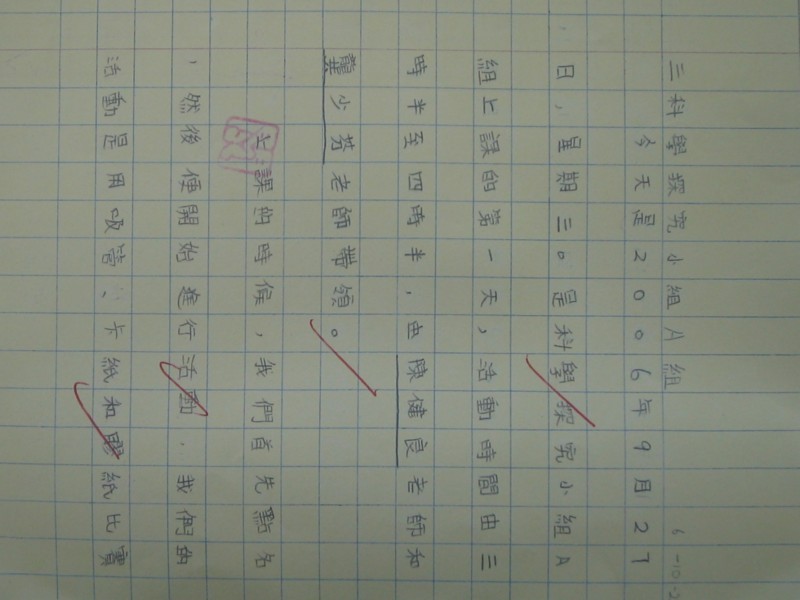 三科學探究小組A組
今天是2006年9月27
日，星期三。是科學探究小組A
組上課的第一天，活動時間由三
時半至四時半，由陳健良老師和
龔少芬老師帶領。
上課的時候，我們首先點名
，然後便開始進行活動．我們的
活動是用吸管、卡紙和膠紙比賽